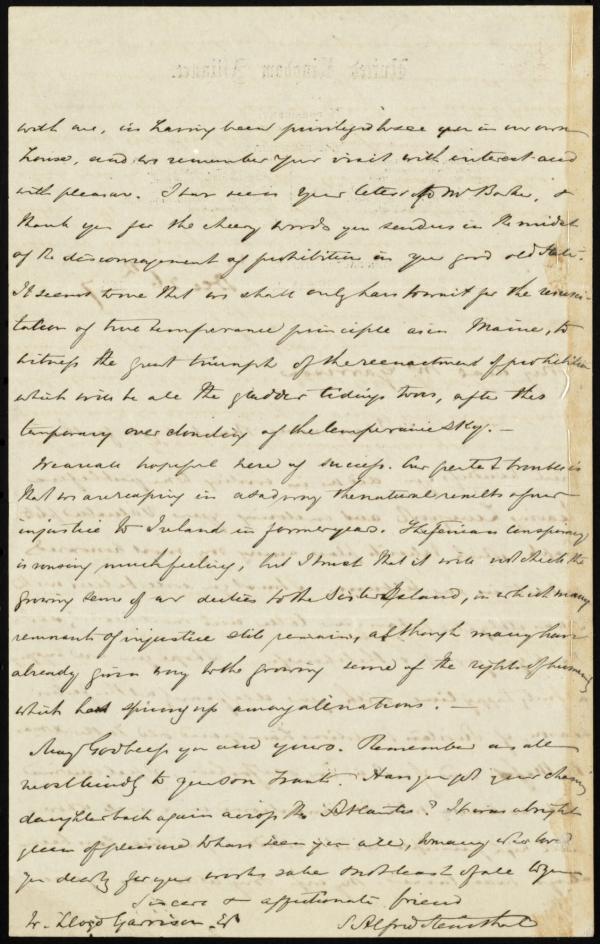 with me, in having been privileged to see you in our own
house, and we remember your visit with interest and
with pleasure. I have seen your letters to Mr Barker, &
thank you for the cheery words you send us in the midst
of the discouragement of prohibition in your good old State.
It seems to me that we shall only have to wait for the resusci-
tation of true temperance principle as in Maine, to
witness the great triumph of the reenactment of prohibition
which will be all the gladder tidings to us, after this
temporary over clouding of the temperance sky. —
We are all hopeful here of success. Our greatest trouble is
that we are reaping in a sad way the natural results of our
injustice to Ireland in former years. The Fenian conspiracy
is rousing much feeling, but I trust that it will not check the
growing sense of our duties to the Sister Island, in which many
remnants of injustice still remain, although many have
already given way to the growing sense of the rights of humanity
which has sprung up among all nations. —
May God bless you and yours. Remember us all
most kindly to your son Frank. Have you got your charming
daughter back again across the Atlantic? It was a bright
gleam of pleasure to have seen you all, to many who loved
you dearly for your works sake & not least of all to your
Sincere & affectionate friend
W. Lloyd Garrison Esq
S Alfred Steinthal
United Kingdom Alliance.